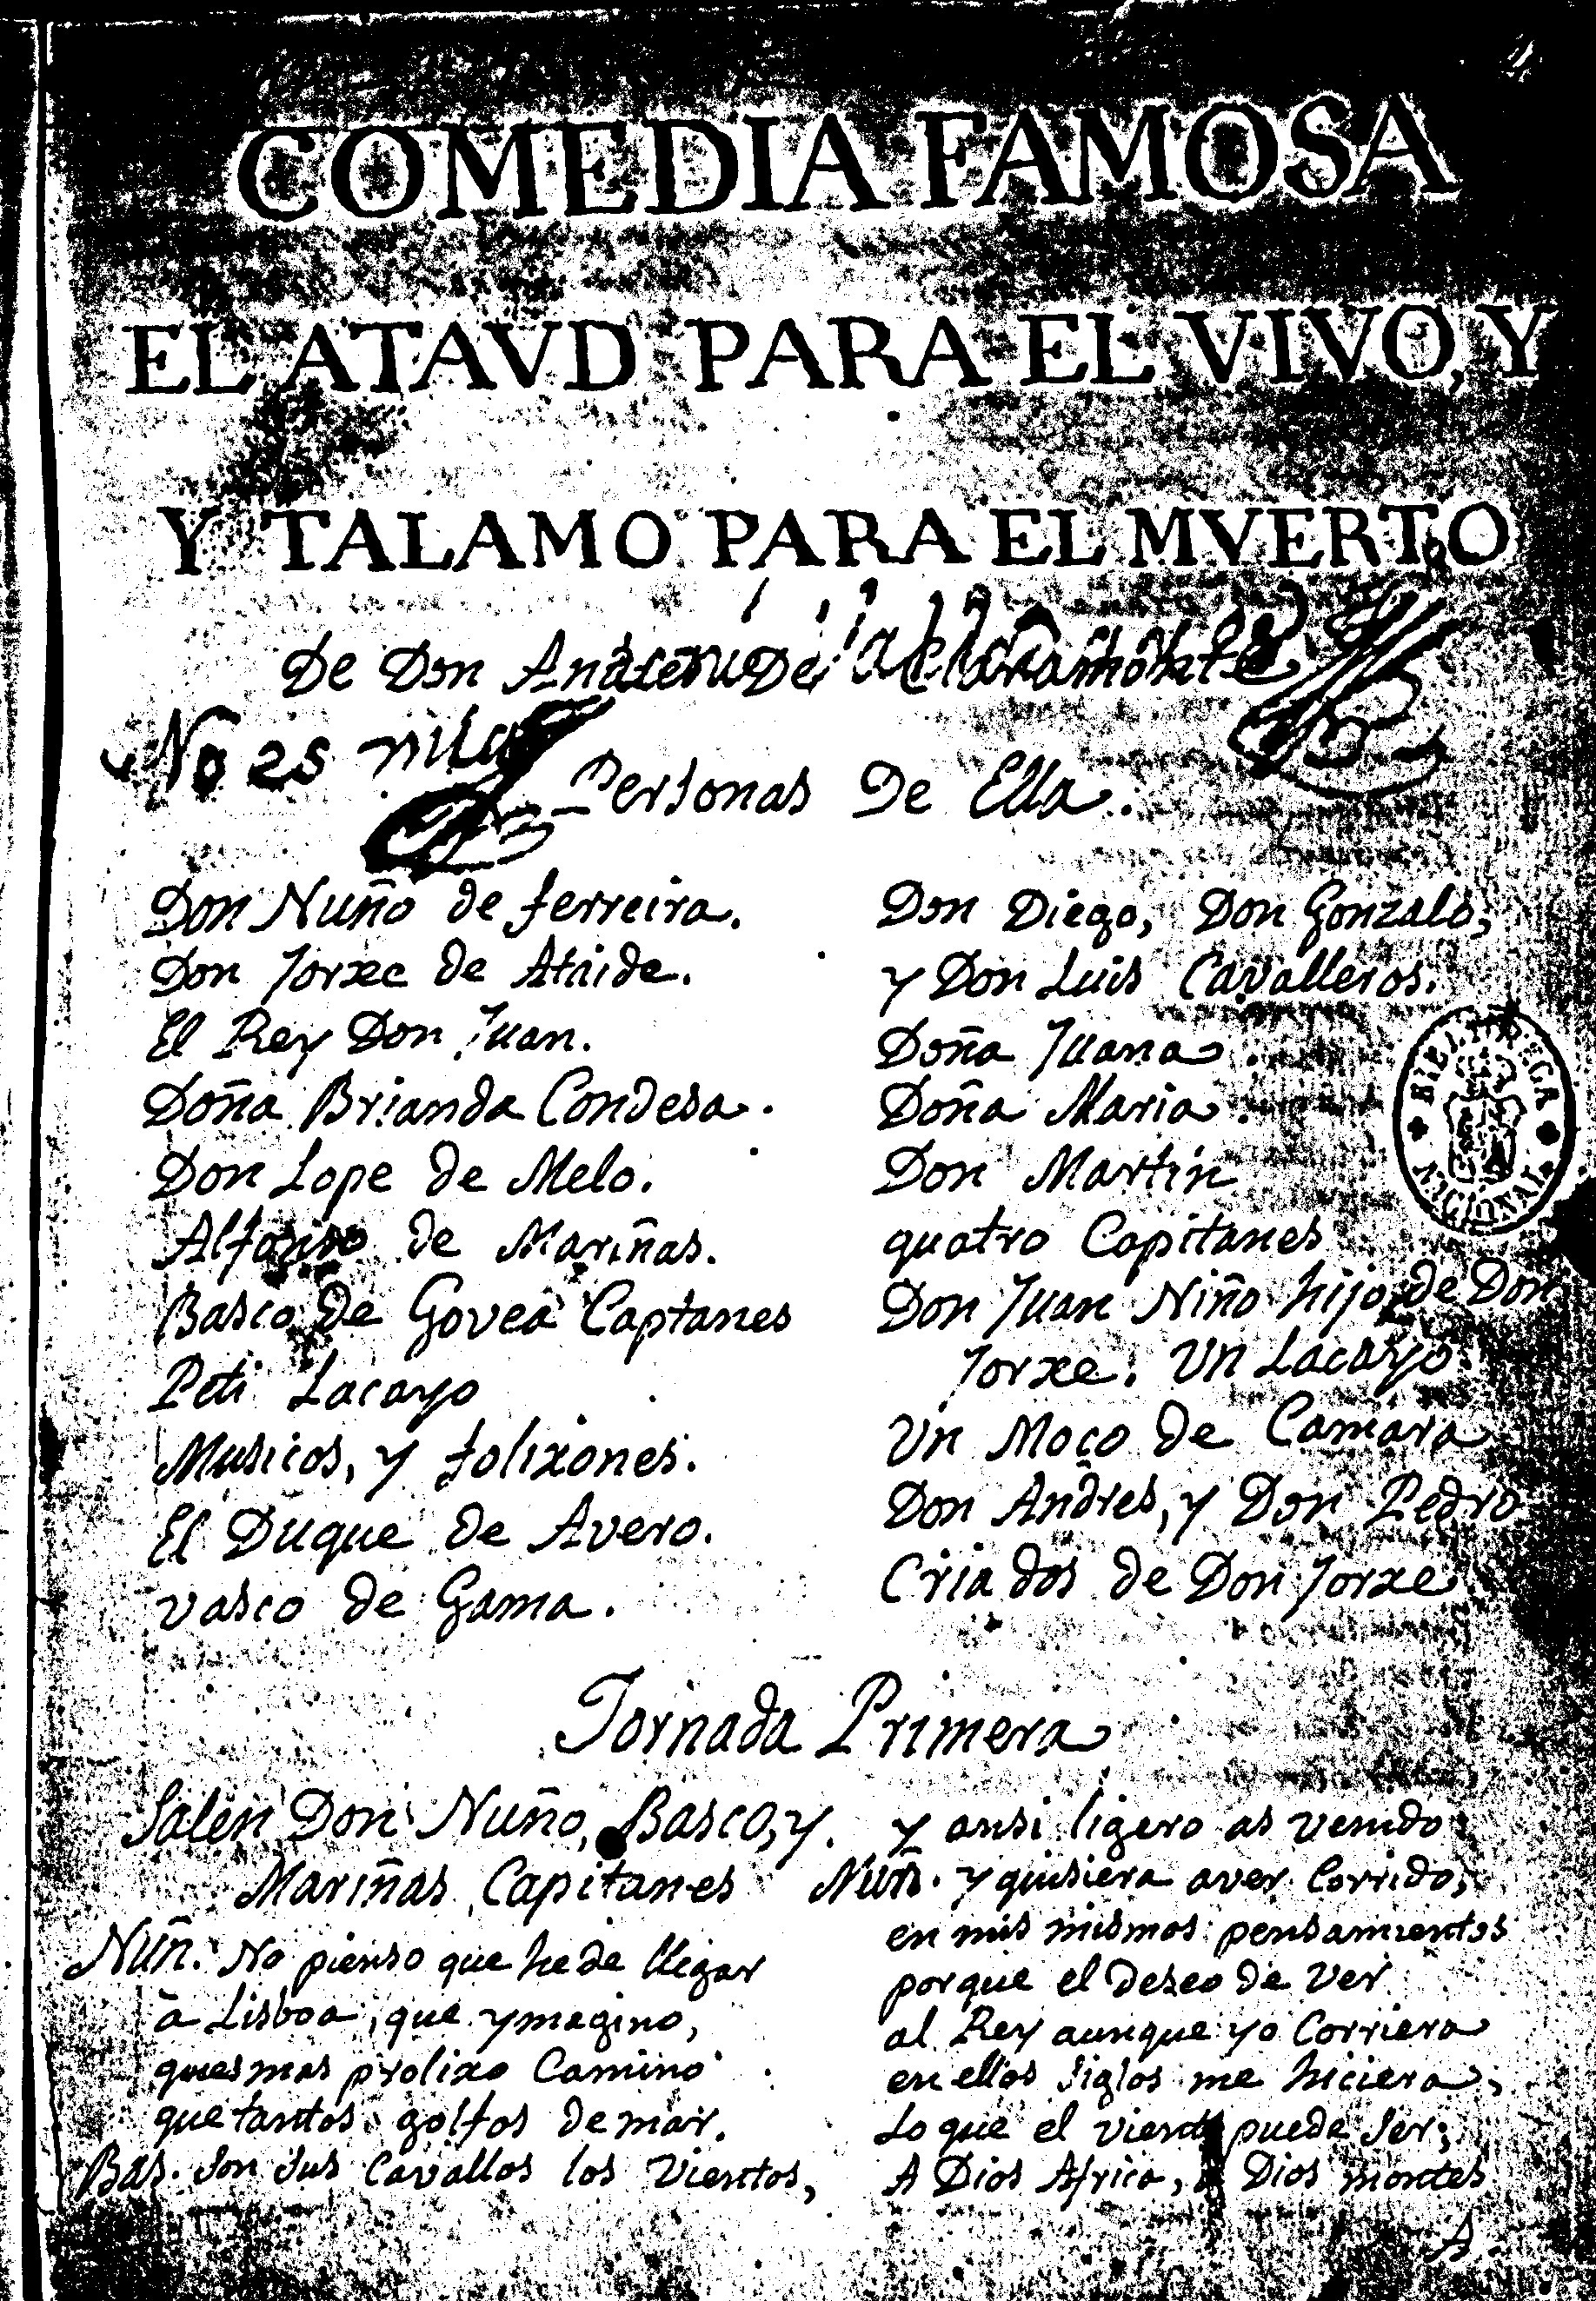 COMEDIA FAMOSA
EL ATAVD PARA EL VIVO, Y
Y TALAMO PARA EL MVERTO
De Don
No es mila
Personas De Ella.
Don Nuño de ferreira.
Don Jorxe de Ataide.
El Rey Don Juan.
Doña Brianda Condesa.
Don Lope de Melo.
Alfonso de Mariñas.
Basco de Govea Captanes
Peti Lacayo
Musicos, y folixones.
El Duque de Avero.
vasco de Gama.
Don Diego, Don Gonzalo,
y Don Luis Cavalleros.
Doña Juana.
Doña Maria.
Don Martin
quatro Capitanes
Don Juan Niño hijo de Don
Jorxe. Un Lacayo
Un Moço de Camara
Don Andres, y Don Pedro
Criados de Don Jorxe
BIBLIOTECA NACIONAL
Jornada Primera
Salen Don Nuño, Basco, y.
Mariñas Capitanes
Nuñ. No pienso que he de llegar
a Lisboa, que ymagino,
ques mas prolixo Camino
que tantos golfos de mar.
Bas. Son sus Cavallos los Vientos,
y ansi ligero as venido
Nuñ. y quisiera aver Corrido,
en mis mismos pensamientos
porque el deseo de Ver
al Rey aunque yo Corriera
en ellos siglos me hiciera,
Lo que el viento puede ser;
A Dios Africa, a Dios montes
A